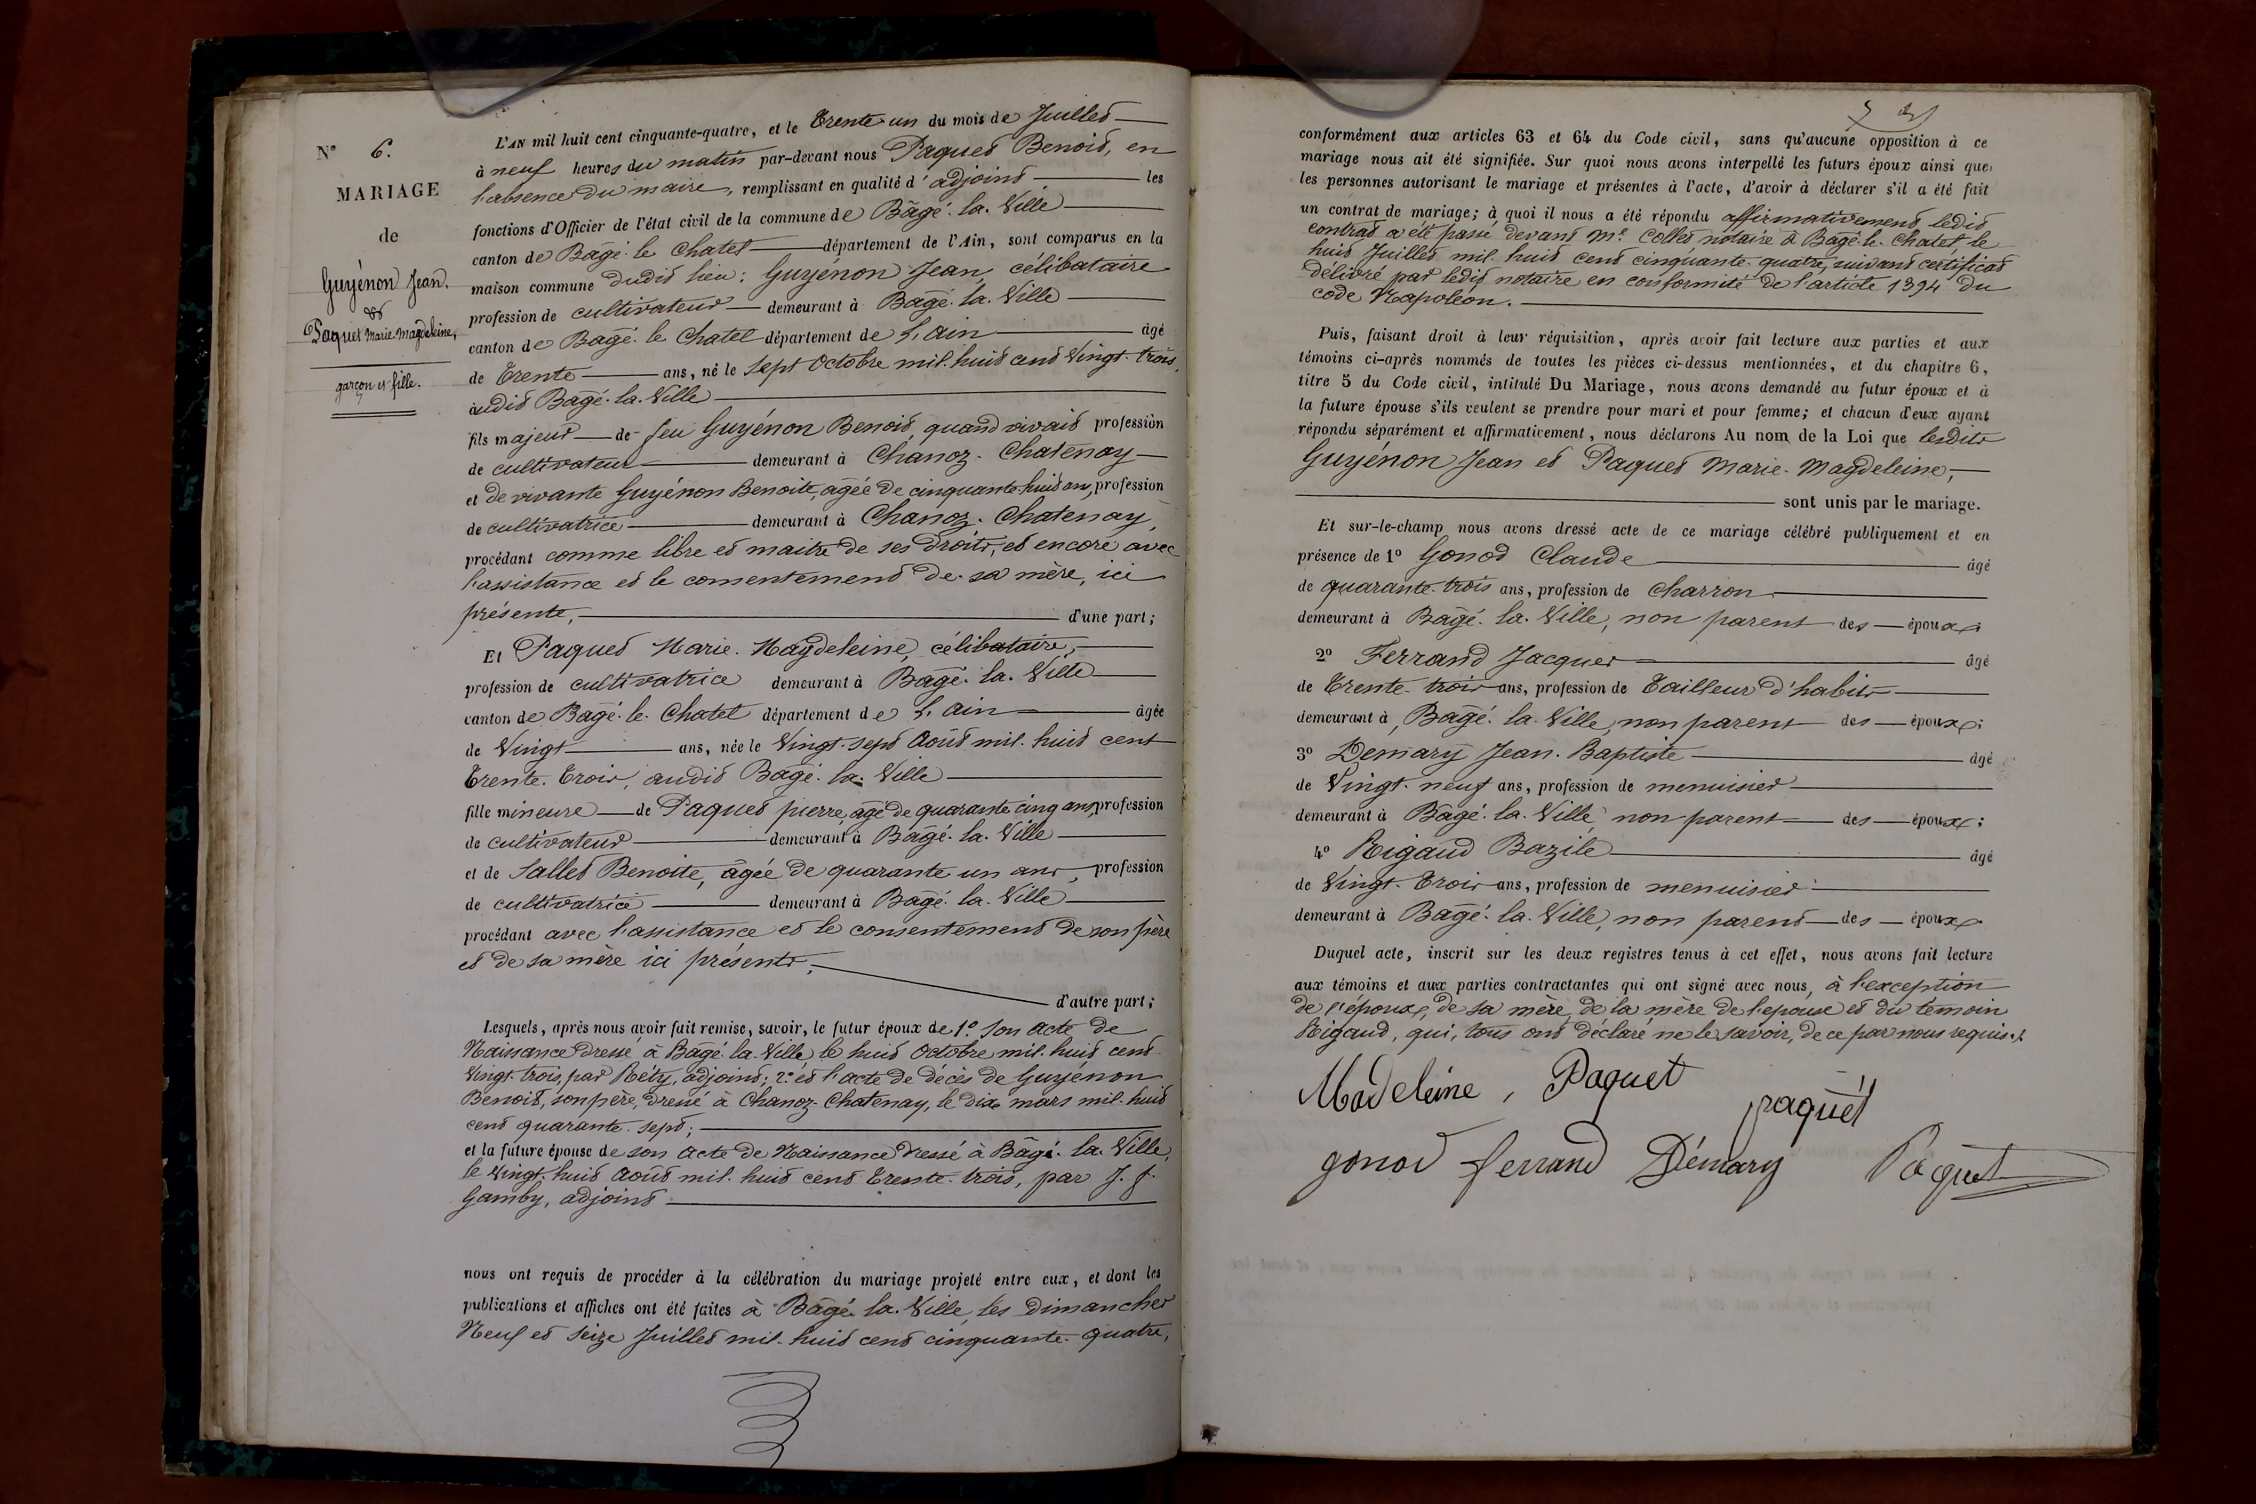 N° 6.
MARIAGE
de
Guyénon Jean.
et
Paquet Marie-Magdeleine,
garçon et fille.
L'AN mil huit cent cinquante-quatre, et le Trente un du mois de Juillet
à neuf heures du matin par-devant nous Paquet Benoit, en
l'absence du maire, remplissant en qualité d'adjoint les
fonctions d'Officier de l'état civil de la commune de Bâgé-la-Ville
canton de Bâgé-le-Chatel département de l'Ain, sont comparus en la
maison commune dudit lieu : Guyénon Jean, célibataire
profession de cultivateur demeurant à Bâgé-la-Ville
canton de Bâgé-le-Chatel département de L'ain âgé
de Trente ans, né le sept Octobre mil-huit cent Vingt-trois,
audit Bâgé-la-Ville
fils majeur de feu Guyénon Benoit, quand vivait profession
de cultivateur demeurant à Chanoz-Chatenay
et de vivante Guyénon Benoite, âgée de cinquante-huit ans, profession
de cultivatrice demeurant à Chanoz-Chatenay,
procédant comme libre et maitre de ses droits, et encore avec
l'assistance et le consentement de sa mère, ici
présente, d'une part ;
Et Paquet Marie-Magdeleine, célibataire,
profession de cultivatrice demeurant à Bâgé-la-Ville
canton de Bâgé-le-Chatel département de L'ain âgée
de Vingt ans, née le Vingt-sept Août mil-huit cent
Trente-Trois, audit Bâgé-la-Ville
fille mineure de Paquet pierre, âgé de quarante cinq ans, profession
de cultivateur demeurant à Bâgé-la-Ville
et de Sallet Benoite, âgée de quarante un ans, profession
de cultivatrice demeurant à Bâgé-la-Ville
procédant avec l'assistance et le consentement de son père
et de sa mère ici présents, d'autre part ;
Lesquels, après nous avoir fait remise, savoir, le futur époux de 1° Son acte de
Naissance dressé à Bâgé-la-Ville le huit Octobre mil-huit cent
Vingt-trois, par Réty, adjoint ; 2° et l'acte de décès de Guyénon
Benoit, son père, dressé à Chanoz-Chatenay, le dix mars mil-huit
cent quarante-sept ;
et la future épouse de son acte de Naissance dressé à Bâgé-la-Ville,
le Vingt-huit Août mil-huit cent Trente-trois, par J. f.
Gamby, adjoint
nous ont requis de procéder à la célébration du mariage projeté entre eux, et dont les
publications et affiches ont été faites à Bâgé-la-Ville, les Dimanches
Neuf et seize Juillet mil-huit cent cinquante-quatre,
conformément aux articles 63 et 64 du Code civil, sans qu'aucune opposition à ce
mariage nous ait été signifiée. Sur quoi nous avons interpellé les futurs époux ainsi que
les personnes autorisant le mariage et présentes à l'acte, d'avoir à déclarer s'il a été fait
un contrat de mariage ; à quoi il nous a été répondu affirmativement, ledit
contrat a été passé devant Me Collet notaire à Bâgé-le-Chatel, le
huit Juillet mil-huit cent cinquante-quatre, suivant certificat
délivré par ledit notaire en conformité de l'article 1394 du
code Napoléon.
Puis, faisant droit à leur réquisition, après avoir fait lecture aux parties et aux
témoins ci-après nommés de toutes les pièces ci-dessus mentionnées, et du chapitre 6,
titre 5 du Code civil, intitulé Du Mariage, nous avons demandé au futur époux et à
la future épouse s'ils veulent se prendre pour mari et pour femme ; et chacun d'eux ayant
répondu séparément et affirmativement, nous déclarons Au nom de la Loi que lesdits
Guyénon Jean et Paquet Marie-Magdeleine,
sont unis par le mariage.
Et sur-le-champ nous avons dressé acte de ce mariage célébré publiquement et en
présence de 1° Gonod Claude âgé
de quarante-trois ans, profession de Charron
demeurant à Bâgé-la-Ville, non parent des époux ;
2° Ferrand Jacques âgé
de Trente-trois ans, profession de Tailleur d'habits
demeurant à Bâgé-la-Ville, non parent des époux ;
3° Demary Jean-Baptiste âgé
de Vingt-neuf ans, profession de menuisier
demeurant à Bâgé-la-Ville non parent des époux ;
4° Rigaud Bazile âgé
de Vingt-Trois ans, profession de menuisier
demeurant à Bâgé-la-Ville, non parent des époux
Duquel acte, inscrit sur les deux registres tenus à cet effet, nous avons fait lecture
aux témoins et aux parties contractantes qui ont signé avec nous, à l'exception
de l'époux, de sa mère, de la mère de l'épouse et du témoin
Rigaud, qui, tous ont déclaré ne le savoir, de ce par nous requis.
Madeleine, Paquet
paquet
gonod ferrand Démary Paquet